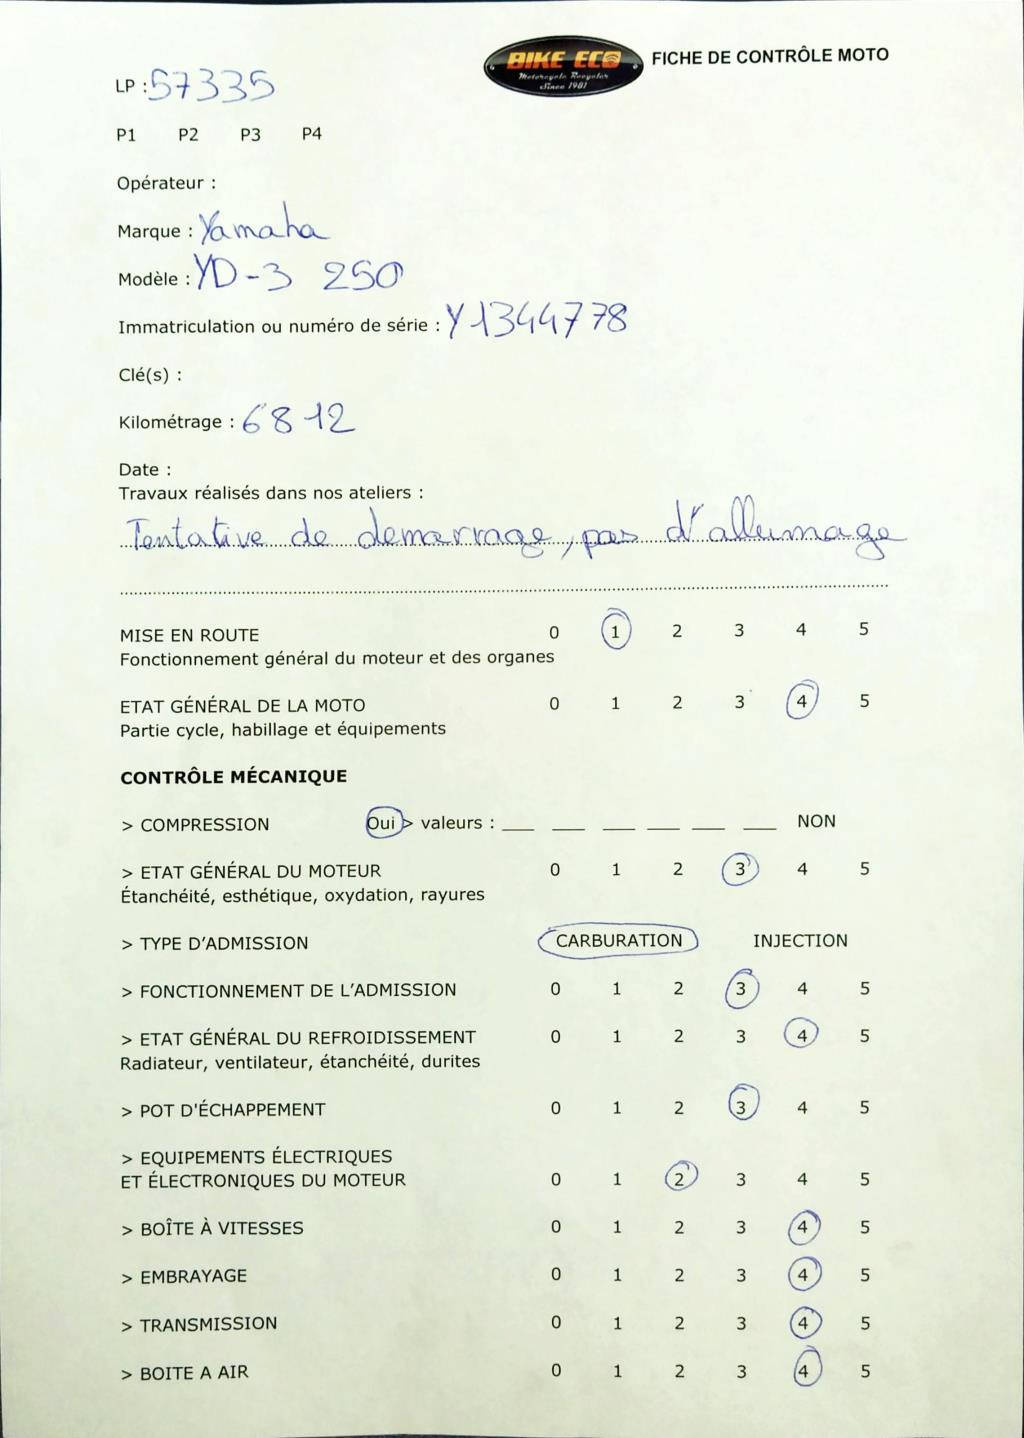 BIKE ECO
Motorcycle Recycler
Since 1981
FICHE DE CONTRÔLE MOTO
LP : 57335
P1 P2 P3 P4
Opérateur :
Marque : Yamaha
Modèle : YD-3 250
Immatriculation ou numéro de série : Y1344778
Clé(s) :
Kilométrage : 6812
Date :
Travaux réalisés dans nos ateliers :
Tentative de demarrage, pas d'allumage
MISE EN ROUTE 0 1 2 3 4 5
Fonctionnement général du moteur et des organes
ETAT GÉNÉRAL DE LA MOTO 0 1 2 3 4 5
Partie cycle, habillage et équipements
CONTRÔLE MÉCANIQUE
> COMPRESSION Oui > valeurs : ___ ___ ___ ___ ___ ___ NON
> ETAT GÉNÉRAL DU MOTEUR 0 1 2 3 4 5
Étanchéité, esthétique, oxydation, rayures
> TYPE D'ADMISSION CARBURATION INJECTION
> FONCTIONNEMENT DE L'ADMISSION 0 1 2 3 4 5
> ETAT GÉNÉRAL DU REFROIDISSEMENT 0 1 2 3 4 5
Radiateur, ventilateur, étanchéité, durites
> POT D'ÉCHAPPEMENT 0 1 2 3 4 5
> EQUIPEMENTS ÉLECTRIQUES
ET ÉLECTRONIQUES DU MOTEUR 0 1 2 3 4 5
> BOÎTE À VITESSES 0 1 2 3 4 5
> EMBRAYAGE 0 1 2 3 4 5
> TRANSMISSION 0 1 2 3 4 5
> BOITE A AIR 0 1 2 3 4 5